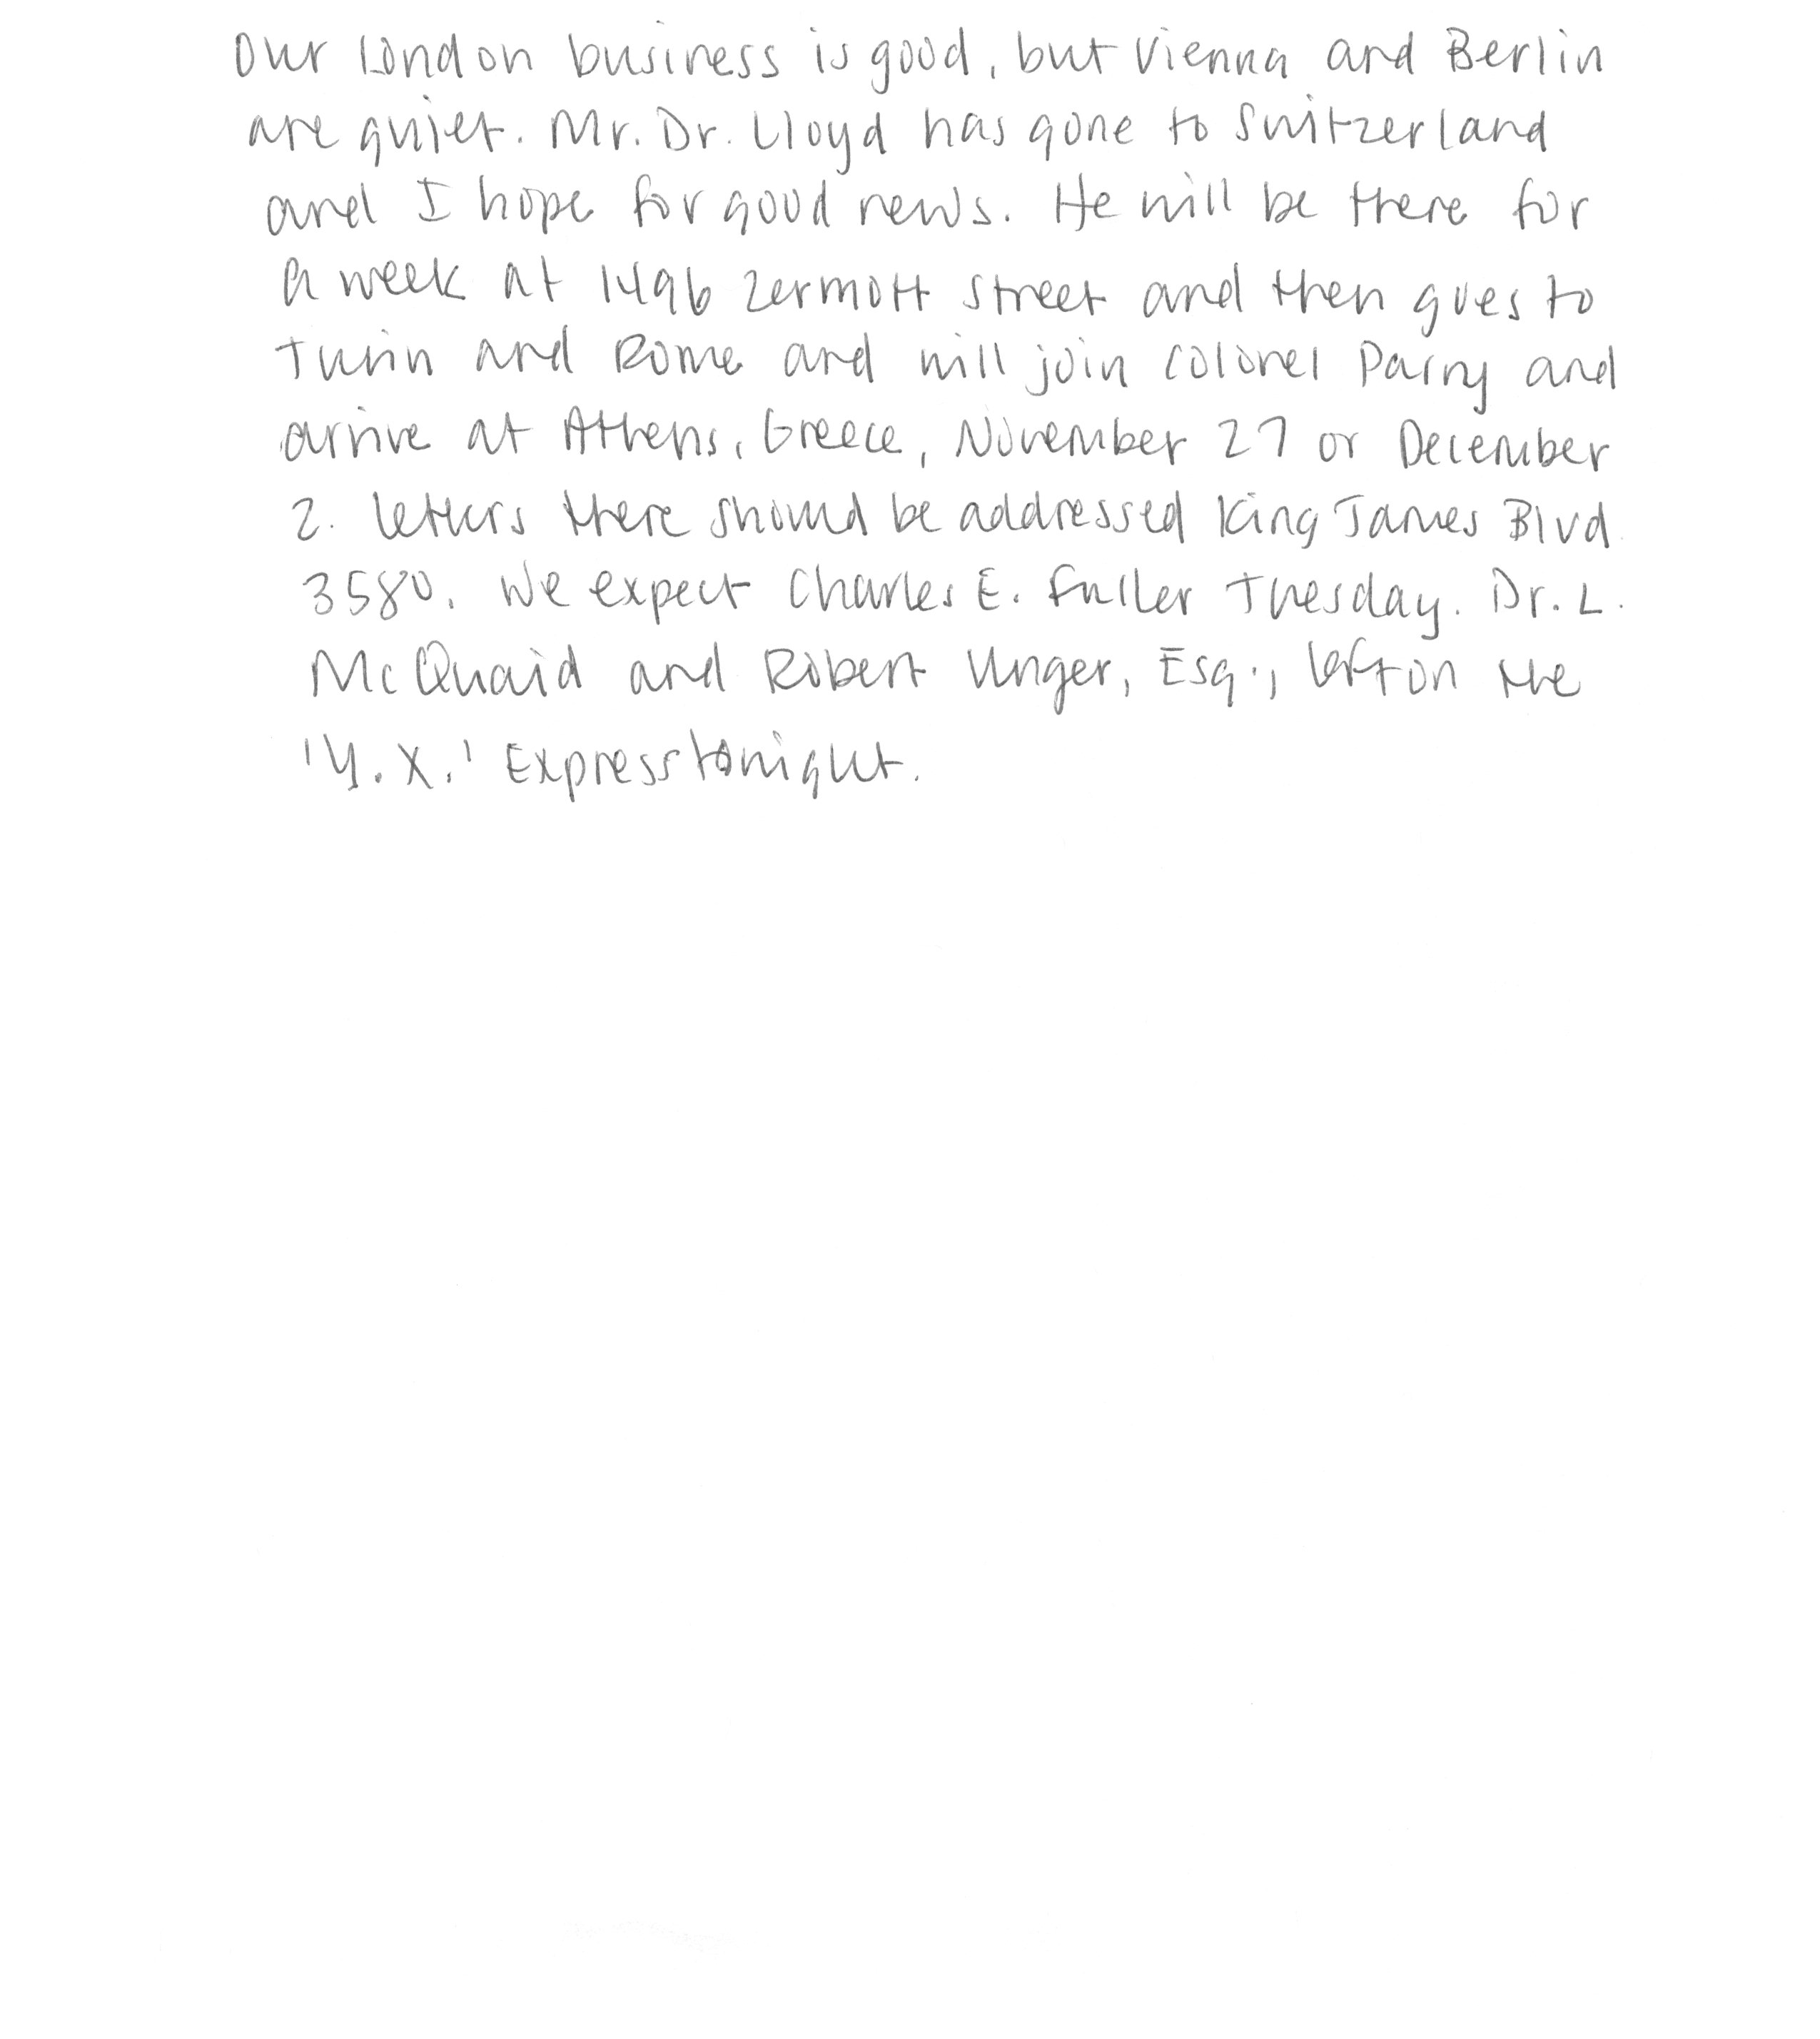 Our London business is good, but Vienna and Berlin
are quiet. Mr. Dr. Lloyd has gone to Switzerland
and I hope for good news. He will be there for
a week at 1496 Zermott Street and then goes to
Turin and Rome and will join Colonel Parry and
arrive at Athens, Greece, November 27 or December
2. Letters there should be addressed King James Blvd
3580. We expect Charles E. Fuller Tuesday. Dr. L.
McQuaid and Robert Unger, Esq., left on the
'Y.X.' Express tonight.